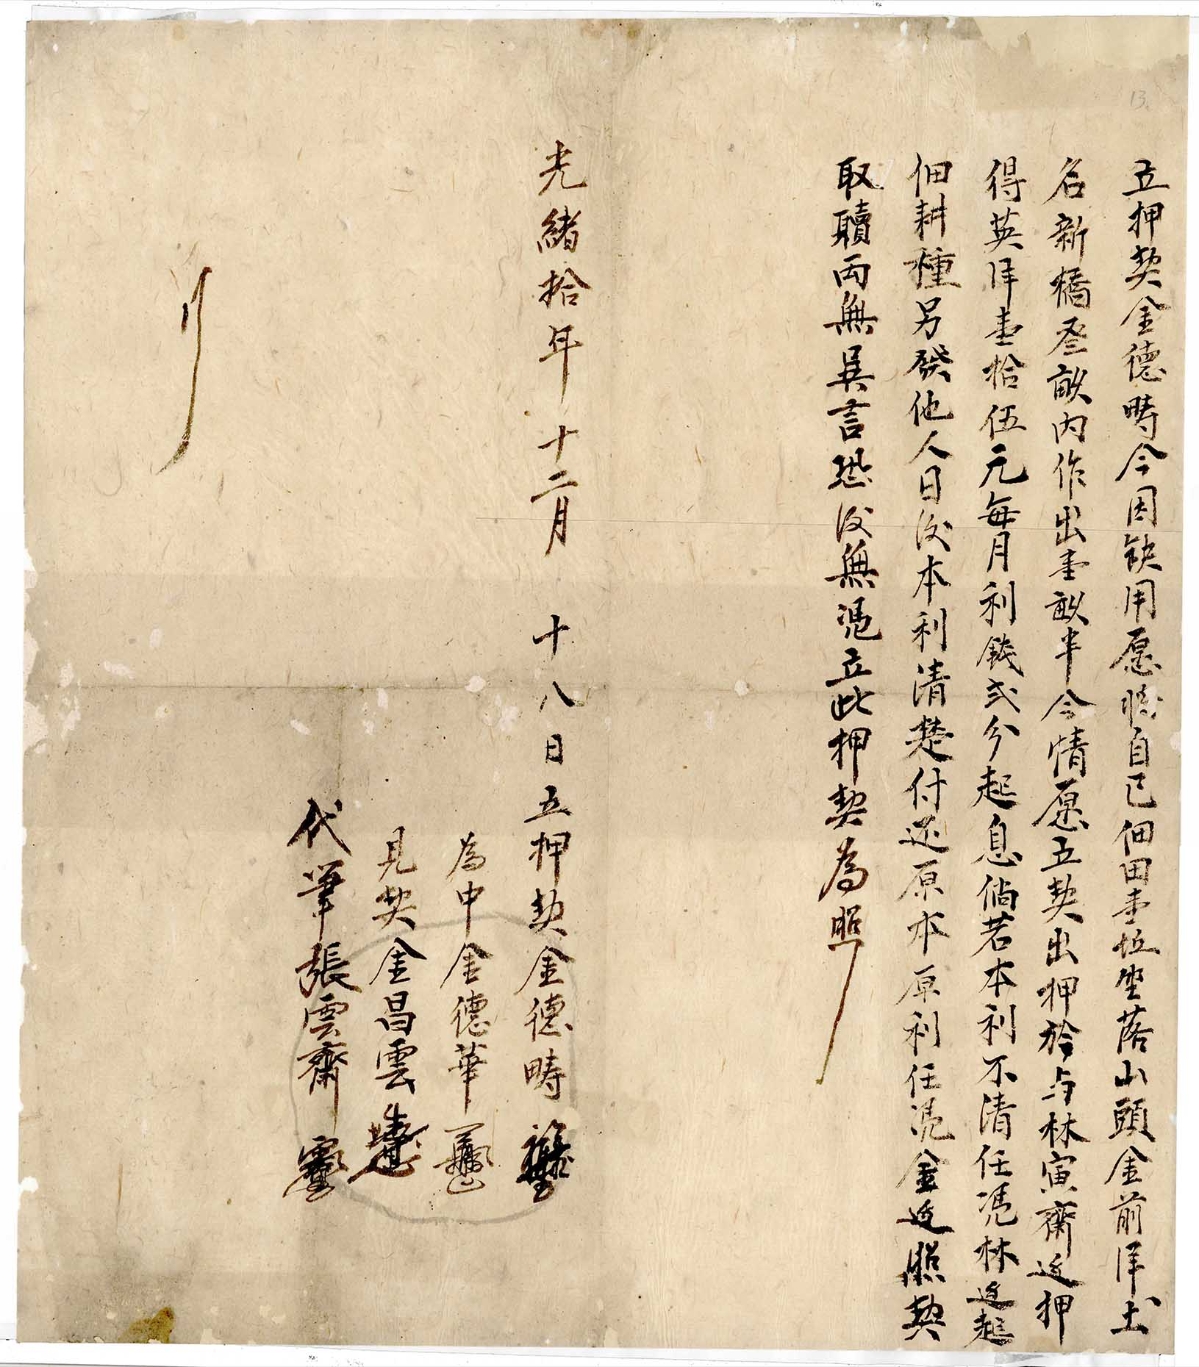 立押契金德畴今因缺用愿將自己佃田壹坵坐落山頭金前洋土
名新橋叁畝内作出壹畝半今情愿立契出押於与林寅齋邊押
得英洋壹拾伍元每月利錢弍分起息倘若本利不清任憑林邊起
佃耕種另發他人日後本利清楚付还原本原利任凴金边照契
取贖両無異言恐後無凴立此押契為照
光緒拾年十二月 十八日立押契金德畴
為中金德華
見契金昌雲
代筆張雲齋
13